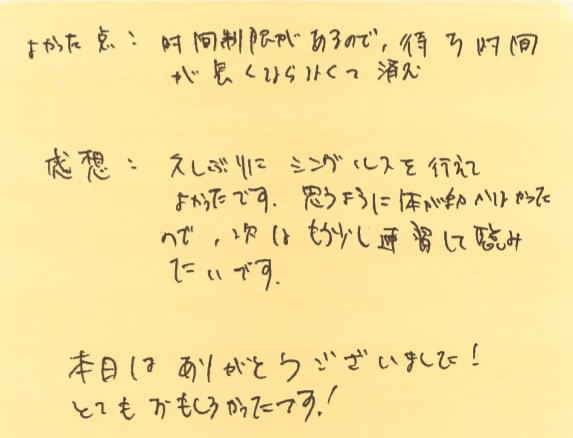 よかった点: 時間制限があるので、待ち時間
が長くならなくて済む
感想: 久しぶりに シングルスを行えて
よかったです. 思うように体が動かなかった
ので, 次はもう少し練習して臨み
たいです.
本日は ありがとうございました!
とてもおもしろかったです!